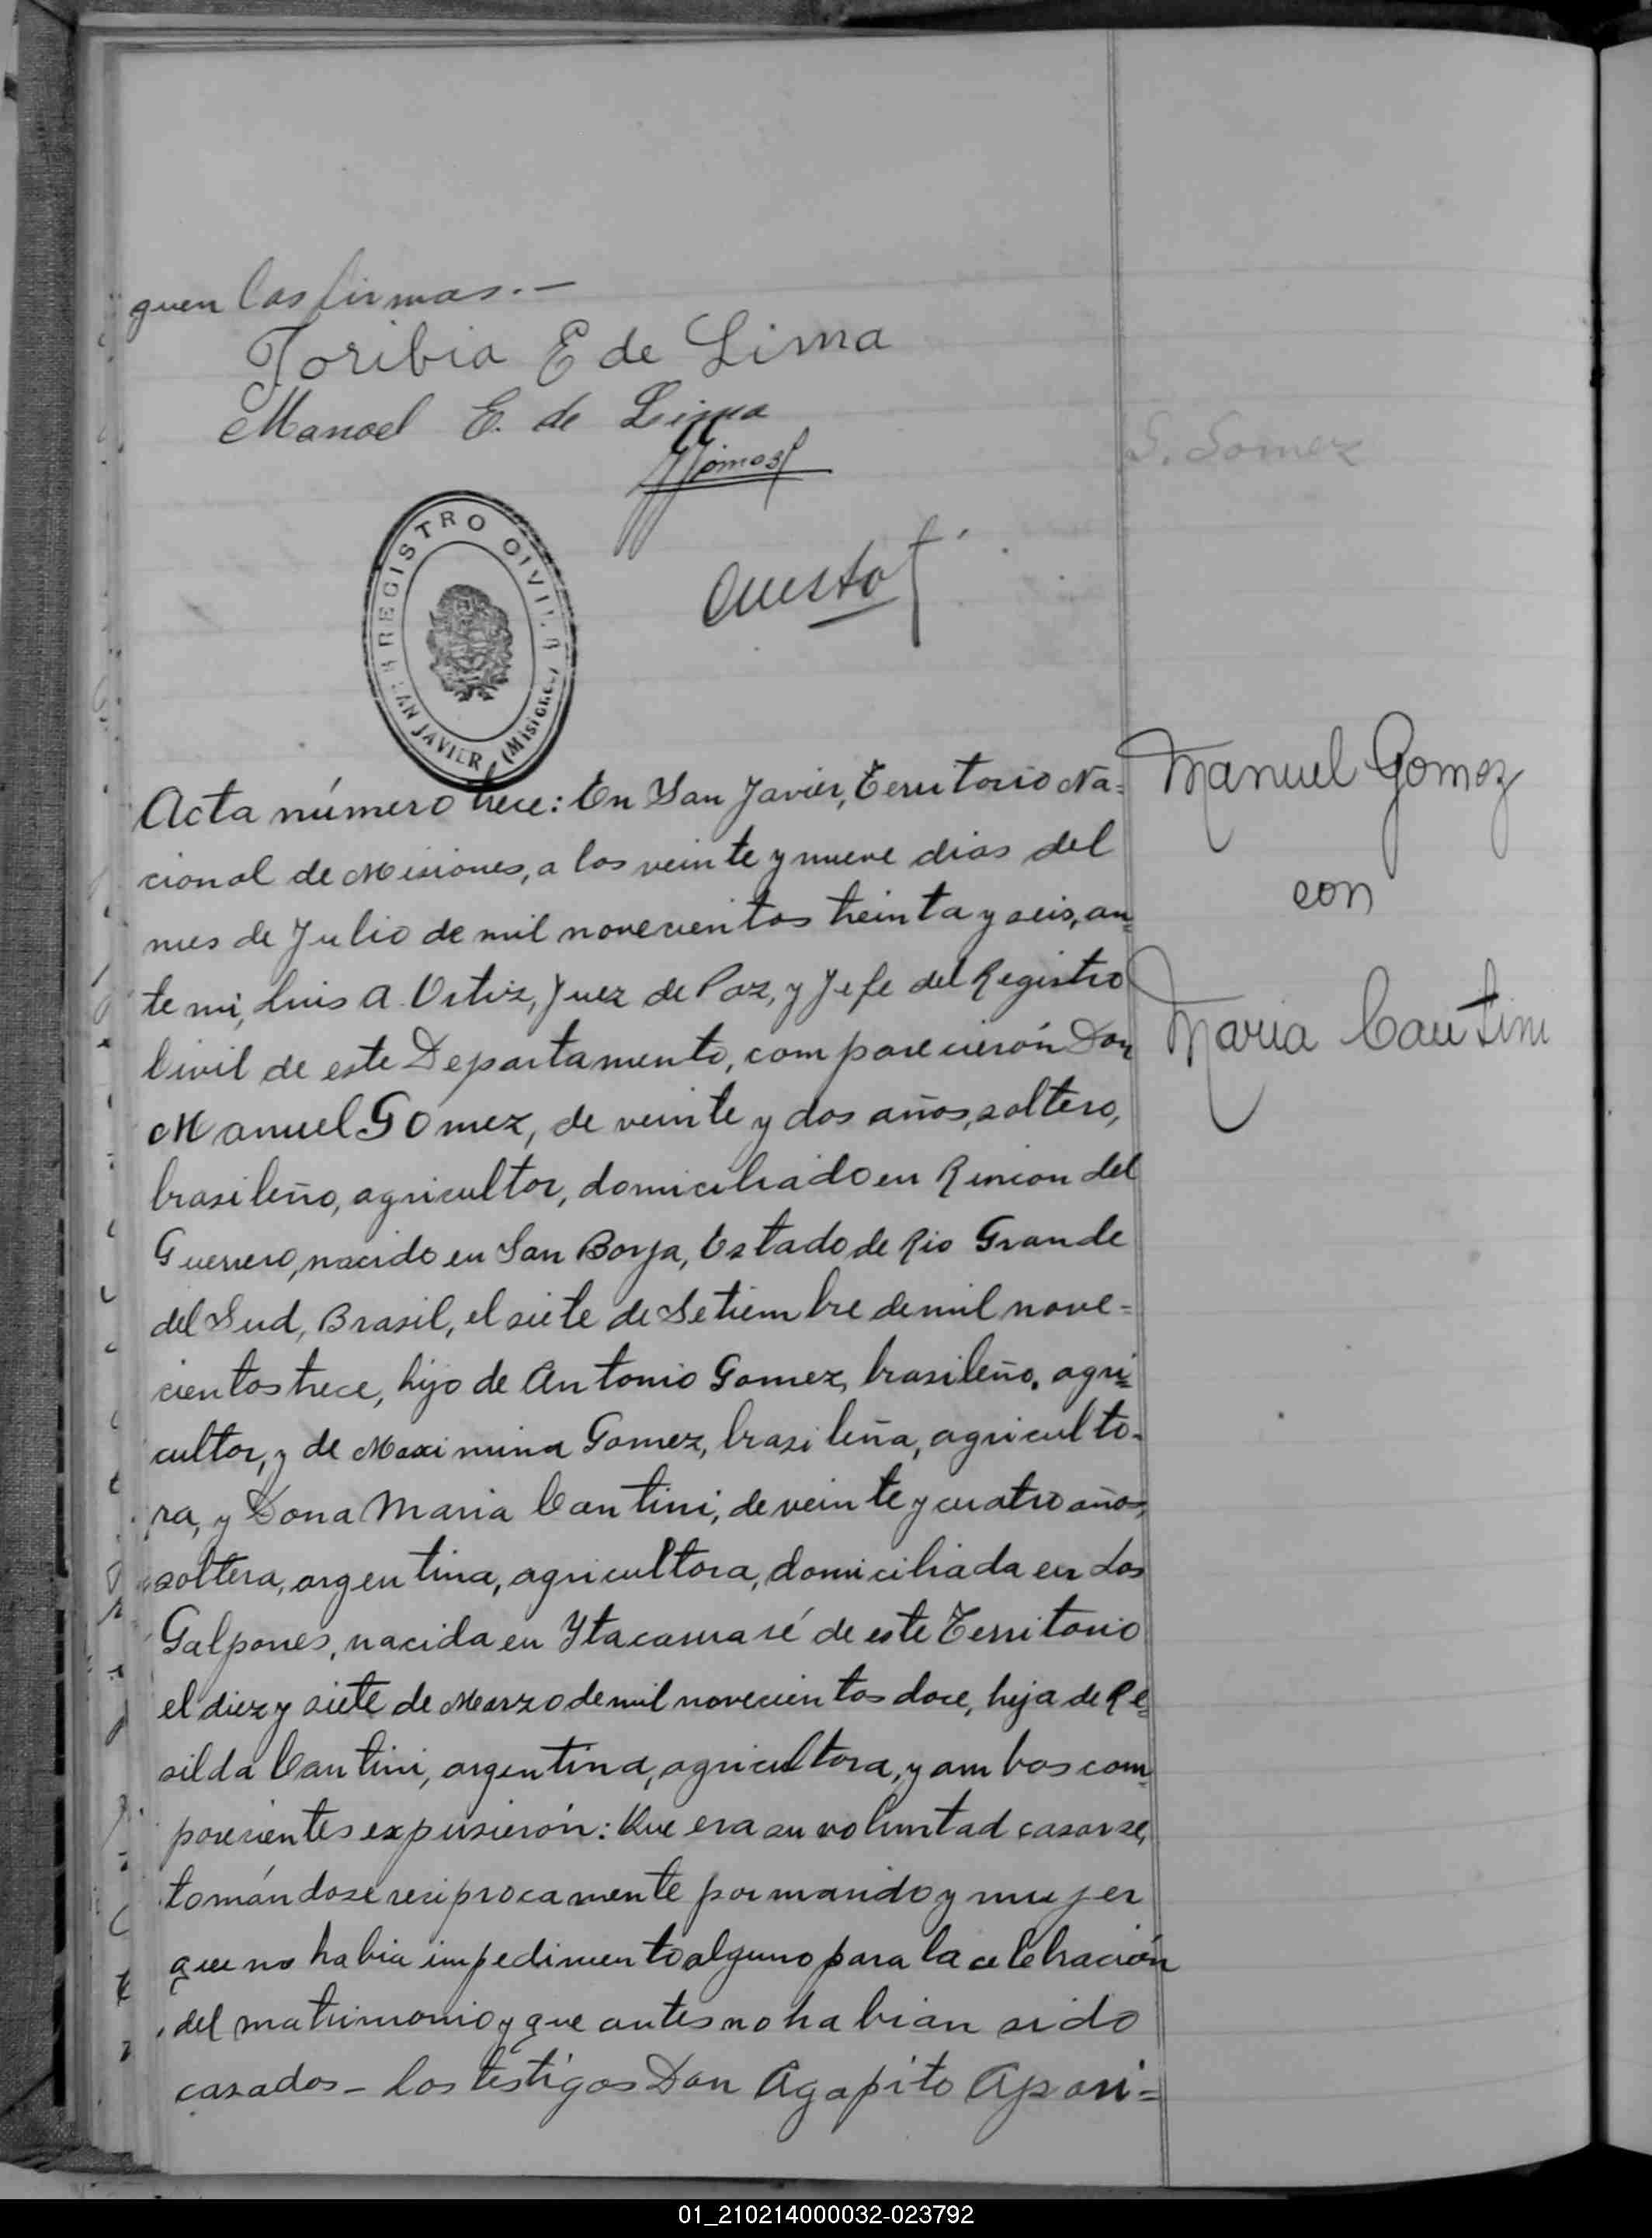 guen las firmas.—
Toribia E de Lima
Manoel E. de Lima
REGISTRO CIVIL
SAN JAVIER (Misiones)
Manuel Gomez
con
Maria Cantini
Acta número trece: En San Javier, Territorio Na=
cional de Misiones, a los veinte y nueve dias del
mes de Julio de mil novecientos treinta y seis, an=
te mi, Luis A. Ortiz, Juez de Paz, y Jefe del Registro
Civil de este Departamento, comparecierón Don
Manuel Gomez, de veinte y dos años, soltero,
brasileño, agricultor, domiciliado en Rincon del
Guerrero, nacido en San Borja, Estado de Rio Grande
del Sud, Brasil, el siete de Setiembre de mil nove=
cientos trece, hijo de Antonio Gomez, brasileño, agri=
cultor, y de Maximina Gomez, brasileña, agriculto=
ra, y Dona Maria Cantini, de veinte y cuatro años,
soltera, argentina, agricultora, domiciliada en Los
Galpones, nacida en Ytacaruaré de este Territorio
el diez y siete de Marzo de mil novecientos doce, hija de Re=
silda Cantini, argentina, agricultora, y ambos com=
parecientes expusierón: Que era su voluntad casarse,
tomándose reciprocamente por marido y mujer
que no habia impedimento alguno para la celebración
del matrimonio y que antes no habian sido
casados – Los testigos Don Agapito Apari=
01_210214000032-023792